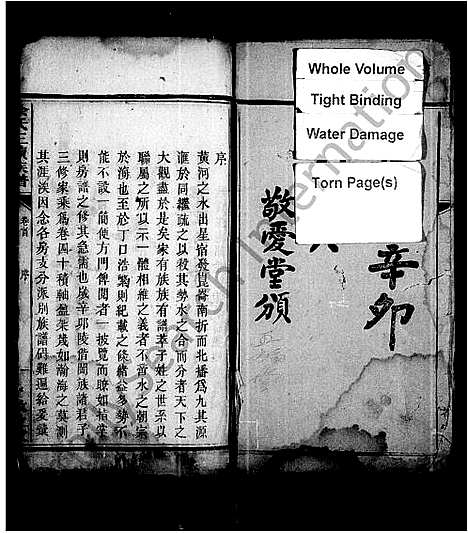 Whole Volume
Tight Binding
Water Damage
Torn Page(s)
辛卯
敬愛堂頒
序
黃河之水出星宿發崑崙南折而北播爲九其源
滙於同繼疏之以殺其勢水之合而分者天下之
大觀盡於是矣家有族族有譜萃子姓之世系以
聯屬之所以示一體相維之義者不啻水之朝宗
於海也至於丁口浩繁則紀載之條緒益多勢不
能不設一簡使方門俾閱者一披覽而瞭如指掌
則房譜之修其急需也歲辛卯陵信闔族諸君子
三修家乘爲卷四十積軸盈架茂如瀚海之莫測
其涯涘因念各房支分派別族譜碍難遍給爰議
卷首
序